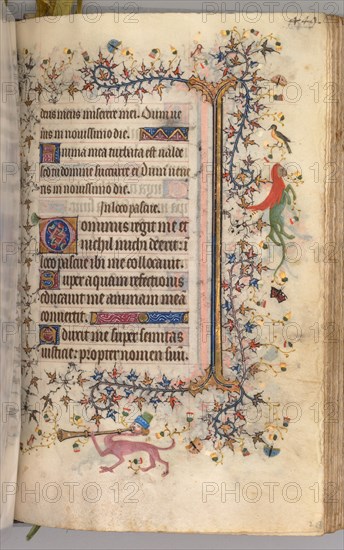 deus meus miserere mei. Quin ne
ius in nouissimo die.
Anima mea turbata est valde
sed tu domine succurre ei Dum vene
ris in nouissimo die.
In loco pascue.
Dominus regit me et
nichil michi deerit: i
loco pascue ibi me collocauit.
Super aquam refectionis
educauit me animam mea
conuertit.
Deduxit me super semitas
iusticie: propter nomen suu.